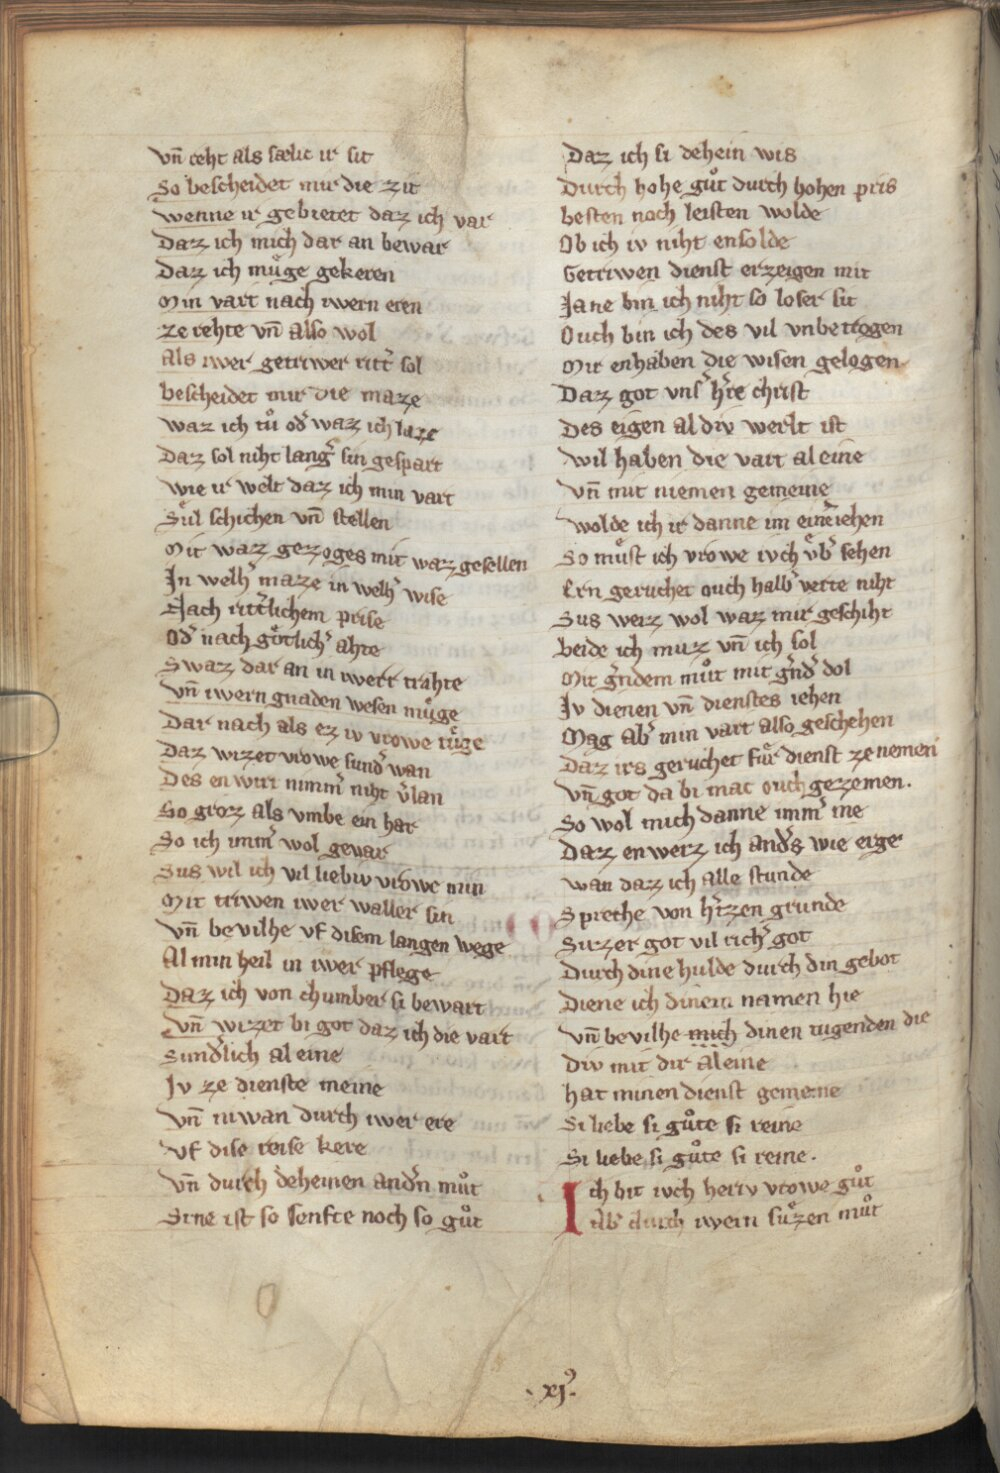 vn̄ reht als sælic ir sit
So bescheidet mir die zit
wenne ir gebietet daz ich var
Daz ich mich dar an bewar
Daz ich muͤge gekeren
Min vart nach iwern eren
ze rehte vn̄ also wol
Als iwer getriwer ritt͛ sol
bescheidet mir die maze
waz ich tuͦ od͛ waz ich laze
Daz sol niht lang͛ sin gespart
wie ir welt daz ich min vart
Suͤl schichen vn̄ stellen
Mit waz gezoges mit waz gesellen
In welh͛ maze in welh͛ wise
Nach ritt͛lichem prise
Od͛ nach goͤtlich͛ ahte
Swaz dar an in iwerr trahte
vn̄ iwern gnaden wesen muͤge
Dar nach als ez iv vrowe tuͤge
Daz wizet vrowe sund͛ wan
Des en wirt nimm͛ niht v͛lan
So groz als vmbe ein har
So ich imm͛ wol gevar
Sus wil ich vil liebiv vrowe min
Mit triwen iwer waller sin
vn̄ bevilhe vf disem langen wege
Al min heil in iwer pflege
Daz ich von chumber si bewart
vn̄ wizet bi got daz ich die vart
Sund͛lich al eine
Iv ze dienste meine
vn̄ niwan durch iwer ere
vf dise reise kere
vn̄ durch deheinen and͛n muͦt
Sine ist so senfte noch so guͦt
Daz ich si dehein wis
Durch hohe guͦt durch hohen pris
besten noch leisten wolde
Ob ich iv niht ensolde
Getriwen dienst erzeigen mit
Jane bin ich niht so loser sit
Ouch bin ich des vil vnbetrogen
Mir enhaben die wisen gelogen
Daz got vns͛ h͛re christ
Des eigen al div werlt ist
wil haben die vart al eine
vn̄ mit niemen gemeine
wolde ich ir danne im eine iehen
So muͤst ich vrowe ivch vͤb͛ sehen
Ern geruchet ouch halb͛ verte niht
Sus werz wol waz mir geschiht
beide ich muz vn̄ ich sol
Mit g͛ndem muͦt mit g͛nd͛ dol
Iv dienen vn̄ dienstes iehen
Mag ab͛ min vart also geschehen
Daz irs geruchet fuͤr dienst ze nemen
vn̄ got da bi mac ouch gezemen.
So wol mich danne imm͛ me
Daz enwerz ich and͛s wie erge
wan daz ich alle stunde
Spreche von h͛zen grunde
Suzer got vil rich͛ got
Durch dine hulde durch din gebot
Diene ich dinem namen hie
vn̄ bevilhe mich dinen tugenden die
Div mit dir al eine
hat minen dienst gemeine
Si liebe si guͦte si reine
Si liebe si guͦte si reine.
Ich bit ivch heriv vrowe guͦt
Ab͛ durch iwern suͤzen muͦt
.xj⁹.